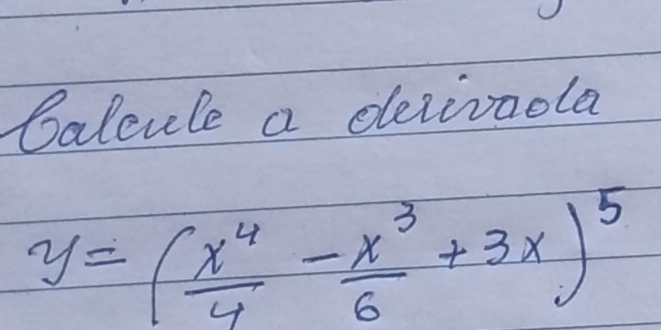 Calcule a derivada
y = (x^4/4 - x^3/6 + 3x)^5